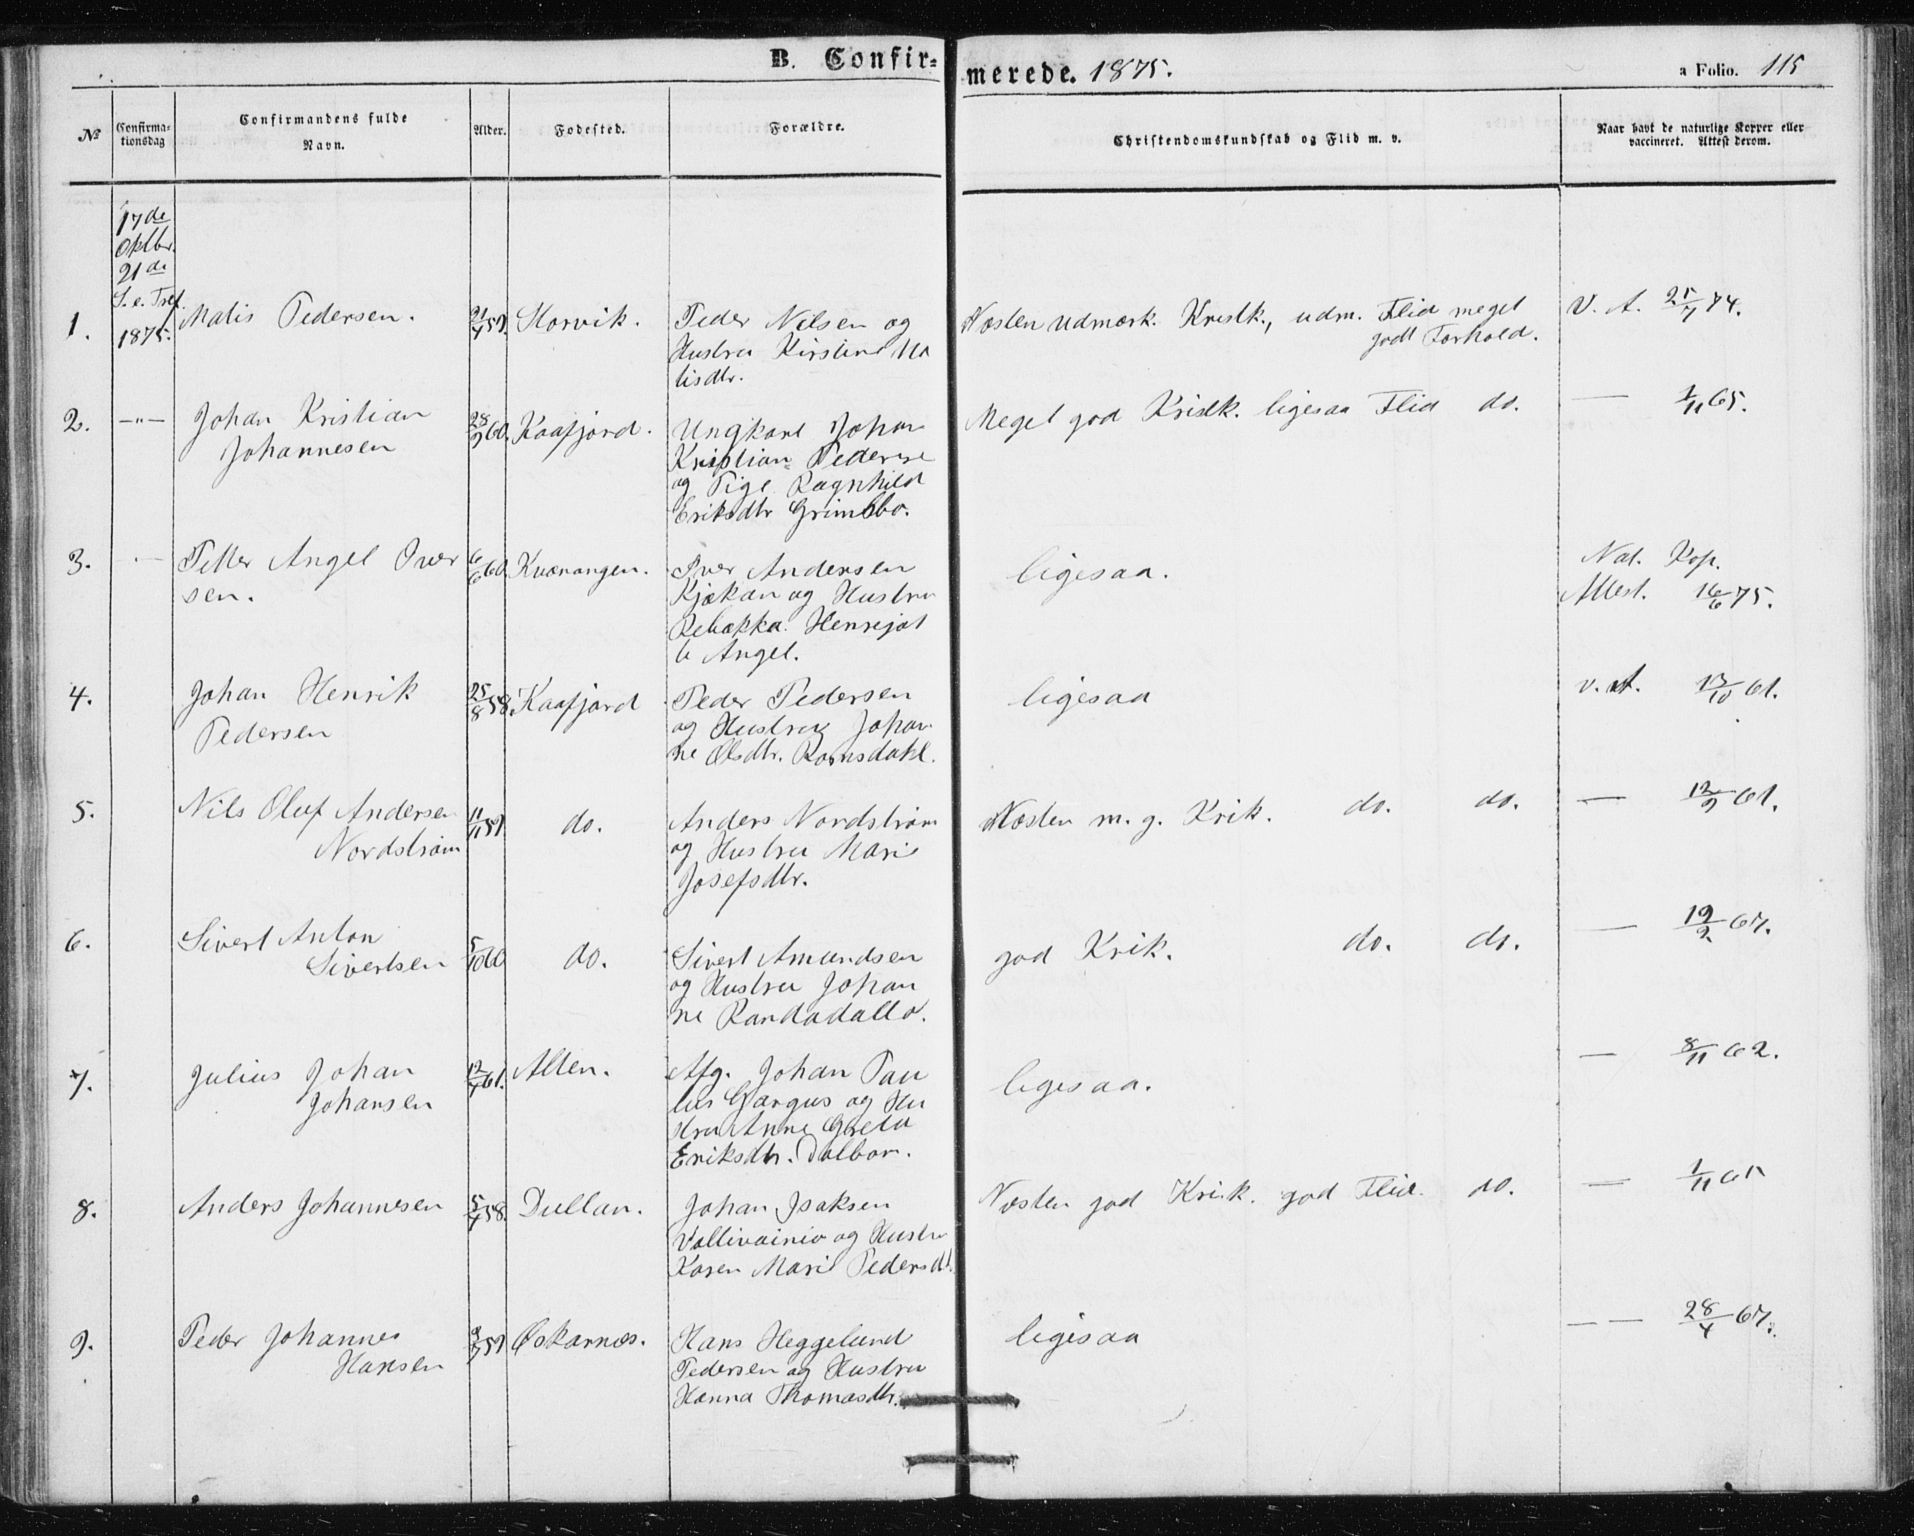 B. Confirmerede. 1875.
a Folio. 115
No
Confirmationsdag
Confirmandens fulde Navn.
Alder.
Fødested.
Forældre.
Christendomskundskab og Flid m. v.
Naar havt de naturlige Kopper eller vaccineret. Attest derom.
17de
Oktbr.
21de
S. e. Tref.
1875.
1. Matis Pedersen. Korvik. Peder Nilsen og
Hustru Kirstine Ma
tisdtr.
Næsten udmærk. Kristk., udm. Flid meget
godt Forhold.
V. A. 25/7 74.
2. —"— Johan Kristian
Johannesen
28/9 60. Kaafjord. Ungkarl Johan
Kristian Pederse
og Pige Ragnhild
Eriksdtr Grimsbo.
Meget god Kristk. ligesaa Flid do. — 1/11 65.
3. — Petter Angel Iver
sen.
6/6 60 Kvænangen. Iver Andersen
Kjækan og Hustru
Rebækka Henrijet
te Angel.
ligesaa.
Nat. Kop.
Attest. 16/6 75.
4. Johan Henrik
Pedersen
25/8 58. Kaafjord Peder Pedersen
og Hustru Johan
ne Olsdtr. Romsdahl.
ligesaa
v. A. 13/10 61.
5. Nils Oluf Andersen
Nordstrøm
11/11 59 do. Anders Nordstrøm
og Hustru Marie
Josefsdtr.
Næsten m. g. Krik. do. do. — 12/9 61.
6. Sivert Anton
Sivertsen
5/10 60 do. Sivert Amundsen
og Hustru Johan
ne
god Krik. do. do. — 19/2 67.
7. Julius Johan
Johansen
12/4 61. Alten. Afg. Johan Pau
lus Gargus og Hu
stru Anne Greta
Eriksdtr. Dalbom.
ligesaa. — 8/11 62.
8. Anders Johannesen 5/4 58. Dullan. Johan Isaksen
Vallivainio og Hustru
Karen Marie Pedersdt.
Næsten god Krik. god Flid. do. — 1/11 65
9. Peder Johannes
Hansen
59 Øskarnæs. Hans Heggelund
Pedersen og Hustru
Hanna Thomasdtr.
ligesaa — — 28/4 67.